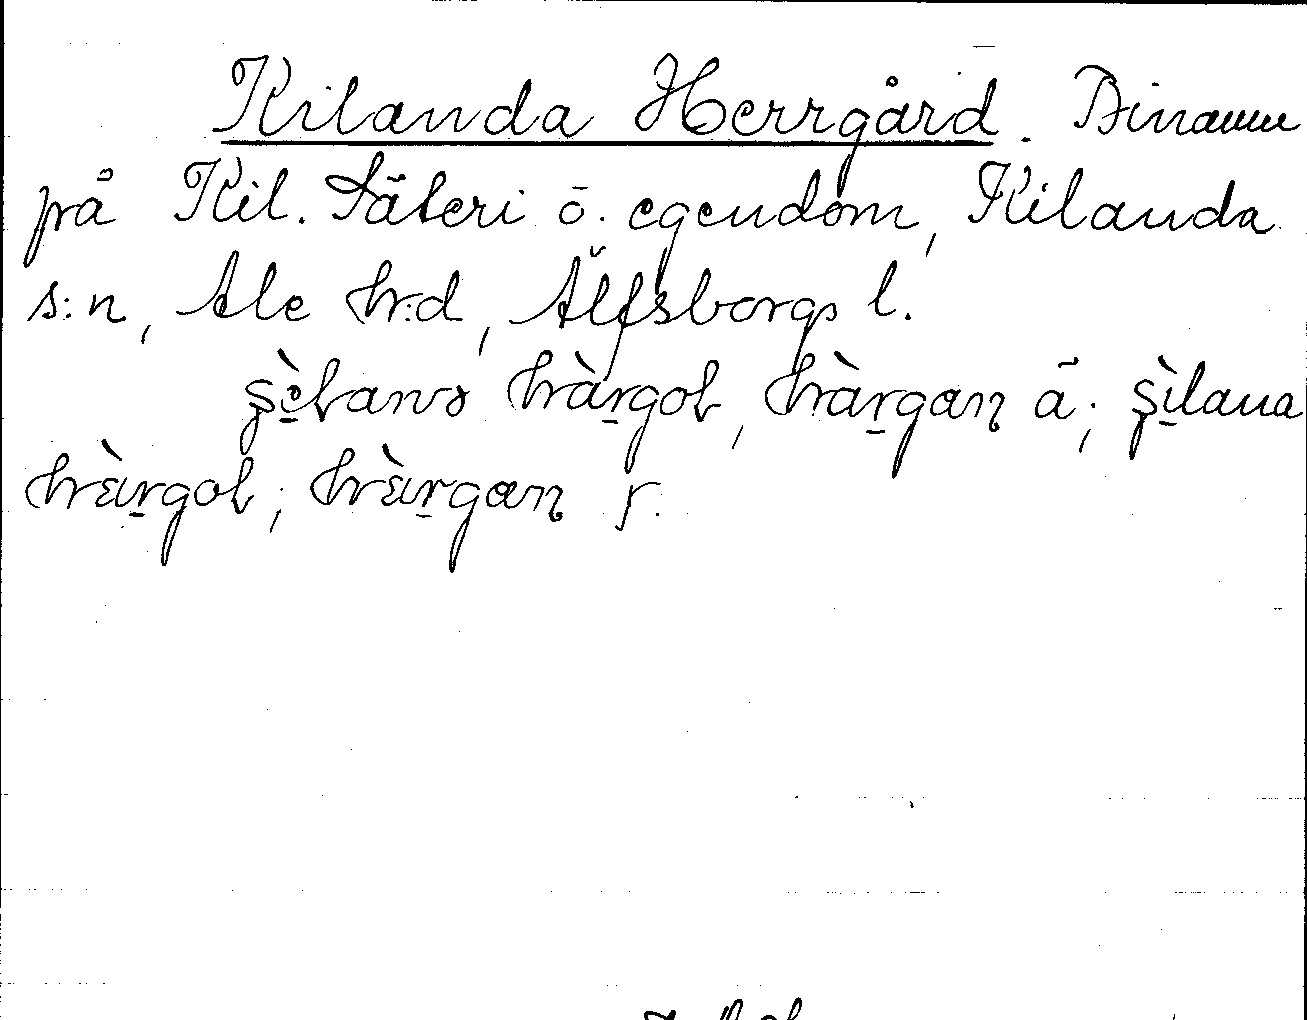 Kilanda Herrgård. Binamn
på Kil. Säteri o. egendom, Kilanda
s:n, Ale hrd, Älfsborgs l.
hàrgol, hàrgan ä;
hærgol, hærgan